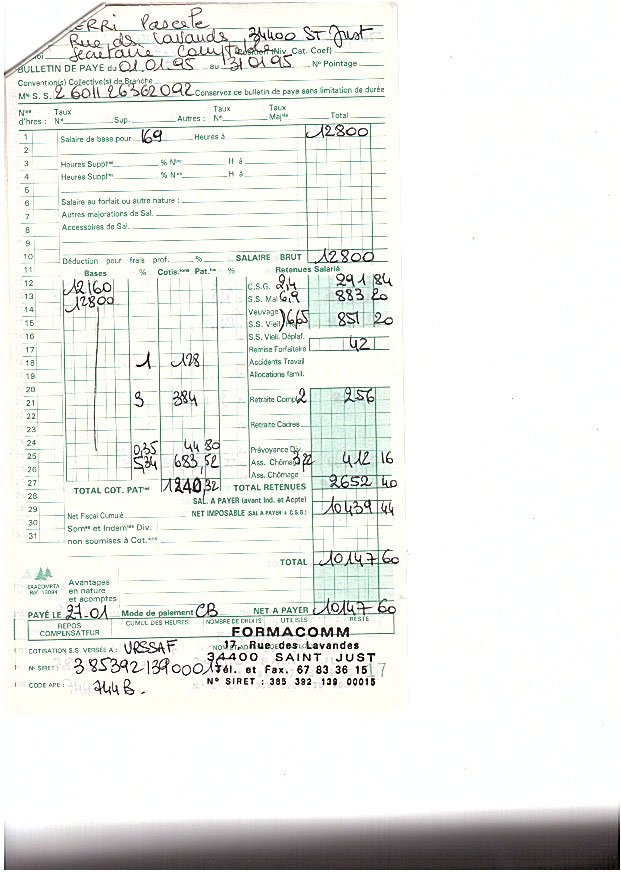 ERRI Pascale
Rue des Lavande 34400 ST Just
Secrétaire Comptable Position (Niv. Cat. Coef)
BULLETIN DE PAYE du 01.01.95 au 31.01.95 N° Pointage
Convention(s) Collective(s) de Branche
Mle S. S. 2 6011 26362092 Conservez ce bulletin de paye sans limitation de durée
Nbre d'hres : Taux Nel Sup. Taux Autres : Nel Taux Majrés Total
1 Salaire de base pour 169 Heures à 12800
2
3 Heures Supplres % Nbre H à
4 Heures Supplres % Nbre H à
5
6 Salaire au forfait ou autre nature :
7 Autres majorations de Sal.
8 Accessoires de Sal.
9
10 Déduction pour frais prof. % SALAIRE BRUT 12800
11 Bases % Cotis.ions Pat.les % Retenues Salarié
12 12160 C.S.G. 2,4 291 84
13 12800 S.S. Mal 6,9 883 20
14 Veuvage
15 S.S. Vieil 6,65 851 20
16 S.S. Vieil. Déplaf.
17 Remise Forfaitaire 42
18 1 128 Accidents Travail
19 Allocations famil.
20
21 3 384 Retraite Compl 2 256
22
23 Retraite Cadres
24 0,35 44 80 Prévoyance Div
25 5,34 683,52 Ass. Chômage 3,22 412 16
26 Ass. Chômage
27 TOTAL COT. PATles 1240,32 TOTAL RETENUES 2652 40
28 SAL. A PAYER (avant Ind. et Acpte)
29 Net Fiscal Cumulé NET IMPOSABLE (SAL A PAYER + C S G) 10439 44
30 Somes et Indemtés Div.
31 non soumises à Cot.ions
TOTAL 10147 60
EXACOMPTA
Réf. 13094
Avantages
en nature
et acomptes
PAYÉ LE 27.01 Mode de paiement CB NET A PAYER 10147 60
REPOS COMPENSATEUR CUMUL DES HEURES NOMBRE DE DROITS UTILISÉS RESTE
FORMACOMM
COTISATION S.S. VERSÉE A : URSSAF 17, Rue des Lavandes
34400 SAINT JUST
N° SIRET : 38539213900015 Tél. et Fax. 67 83 36 15 17
N° SIRET : 385 392 139 00015
CODE APE : 744B.